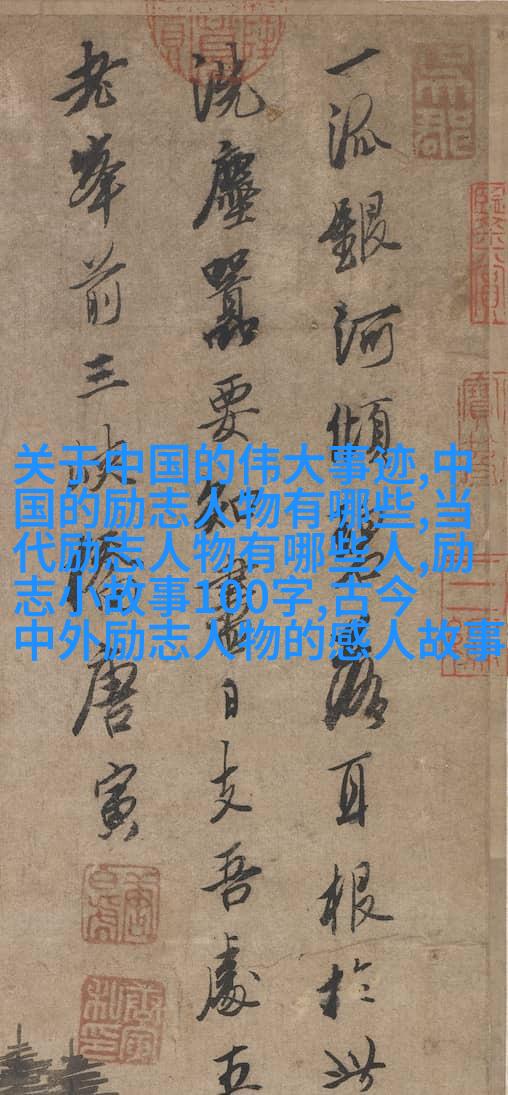 一派銀河傾碧落耳根於此
洗塵囂要知盡日支吾處五
老峯前三峽橋唐寅
关于中国的伟大事迹,中
国的励志人物有哪些,当
代励志人物有哪些人,励
志小故事100字,古今
中外励志人物的感人故事